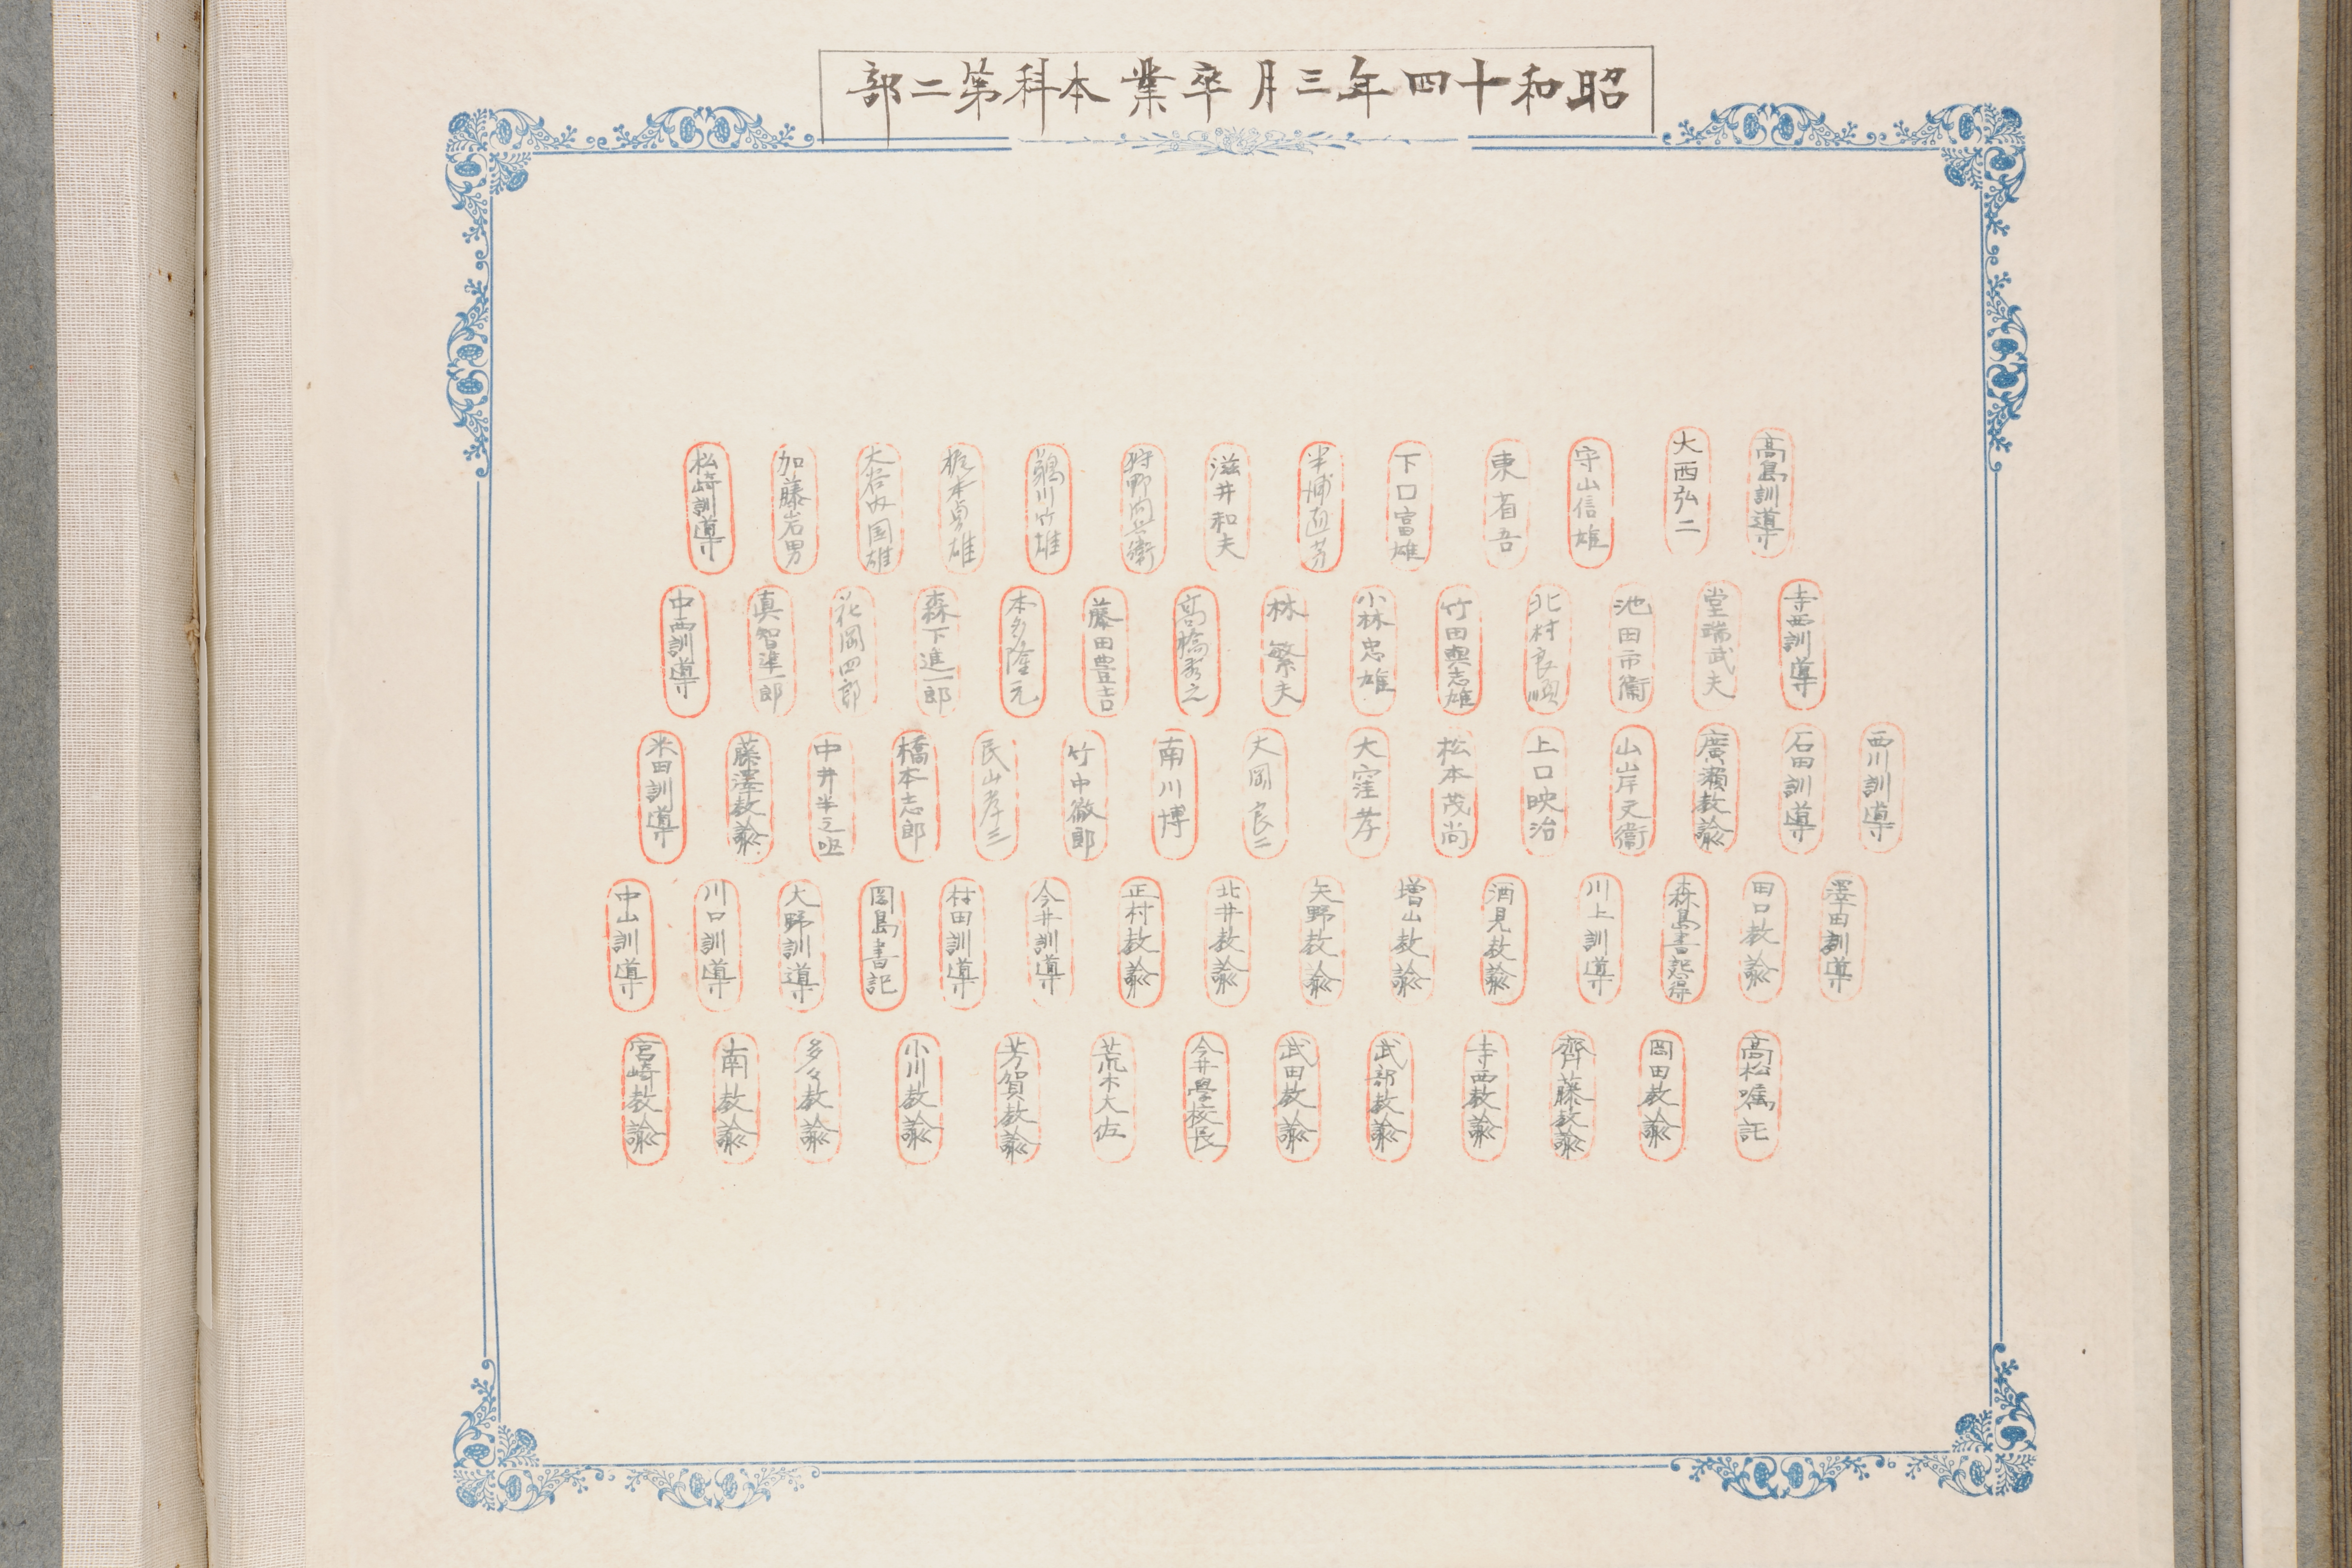 昭和十四年三月卒業本科第二部
高島訓導
大西弘二
守山信雄
東省吾
下口富雄
半浦直芳
滋井和夫
狩野向兵衛
鵜川竹雄
梶本勇雄
大谷内国雄
加藤岩男
松崎訓導
寺西訓導
堂端武夫
池田市衞
北村良順
竹田與志雄
小林忠雄
林繁夫
髙橋秀之
藤田豊吉
本多隆元
森下進一郎
花岡四郎
真智準一郎
中西訓導
西川訓導
石田訓導
廣瀬教諭
山岸又衞
上口映治
松本茂尚
大窪孝
大岡良二
南川博
竹中徹郎
民山孝三
橋本志郎
中井半之
藤澤教諭
米田訓導
澤田訓導
田口教諭
森島書記
川上訓導
酒見教諭
増山教諭
矢野教諭
北井教諭
正村教諭
今井訓導
村田訓導
岡島書記
大野訓導
川口訓導
中山訓導
高松嘱託
岡田教諭
齊藤教諭
寺西教諭
武部教諭
武田教諭
今井學校長
荒木大佐
芳賀教諭
小川教諭
多々教諭
南教諭
宮崎教諭